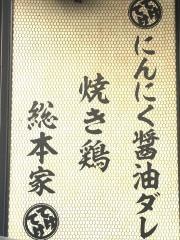 にんにく醤油ダレ
焼き鶏
総本家